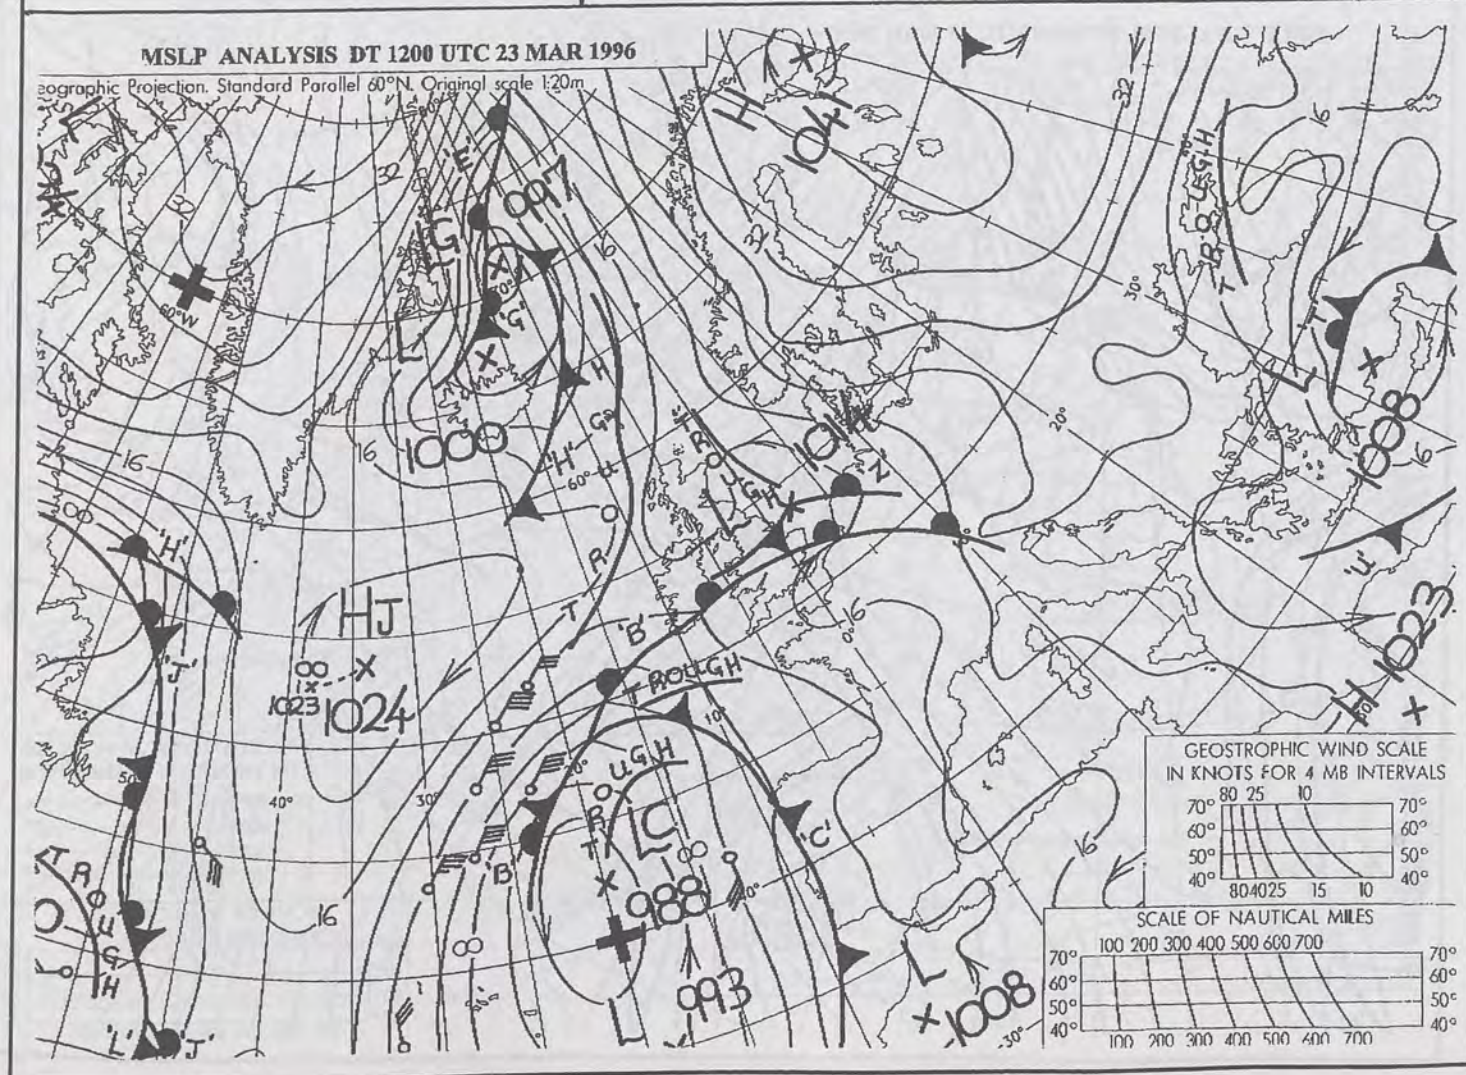 MSLP ANALYSIS DT 1200 UTC 23 MAR 1996
eographic Projection. Standard Parallel 60°N. Original scale 1:20m
H
1041
32
16
'E'
997
32
32
G
16
TROUGH
60°W
'G'
L
1000
16
'H'
60°
TROUGH
32
30°
20°
TROUGH
1014
L
'Z'
L
1008
16
16
'H'
'J'
HJ
1023
1024
'B'
TROUGH
10°
TROUGH
LC
988
993
'B'
'C'
50°
40°
30°
16
TROUGH
'L'
'J'
L
16
0°
L
1008
30°
16
H
1023
GEOSTROPHIC WIND SCALE
IN KNOTS FOR 4 MB INTERVALS
80 25 10
70° 70°
60° 60°
50° 50°
40° 40°
80 40 25 15 10
SCALE OF NAUTICAL MILES
100 200 300 400 500 600 700
70° 70°
60° 60°
50° 50°
40° 40°
100 200 300 400 500 600 700